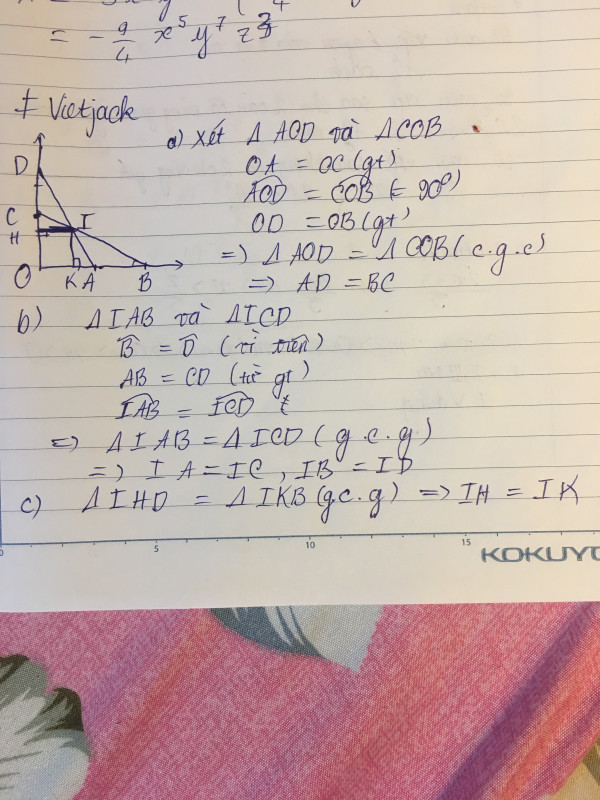 = - 9/4 x⁵ y⁷ z
# Vietjack
a) Xét Δ AOD và ΔCOB
OA = OC (gt)
AOD = COB (= 90°)
OD = OB (gt)
=) Δ AOD = Δ COB (c.g.c)
=) AD = BC
D
C
I
H
O K A B
b) ΔIAB và ΔICD
B = D (từ trên)
AB = CD (từ gt)
IAB = ICD
=) ΔIAB = ΔICD (g.c.g)
=) IA = IC, IB = ID
c) ΔIHD = ΔIKB (g.c.g) => IH = IK
0 5 10 15
KOKUYO